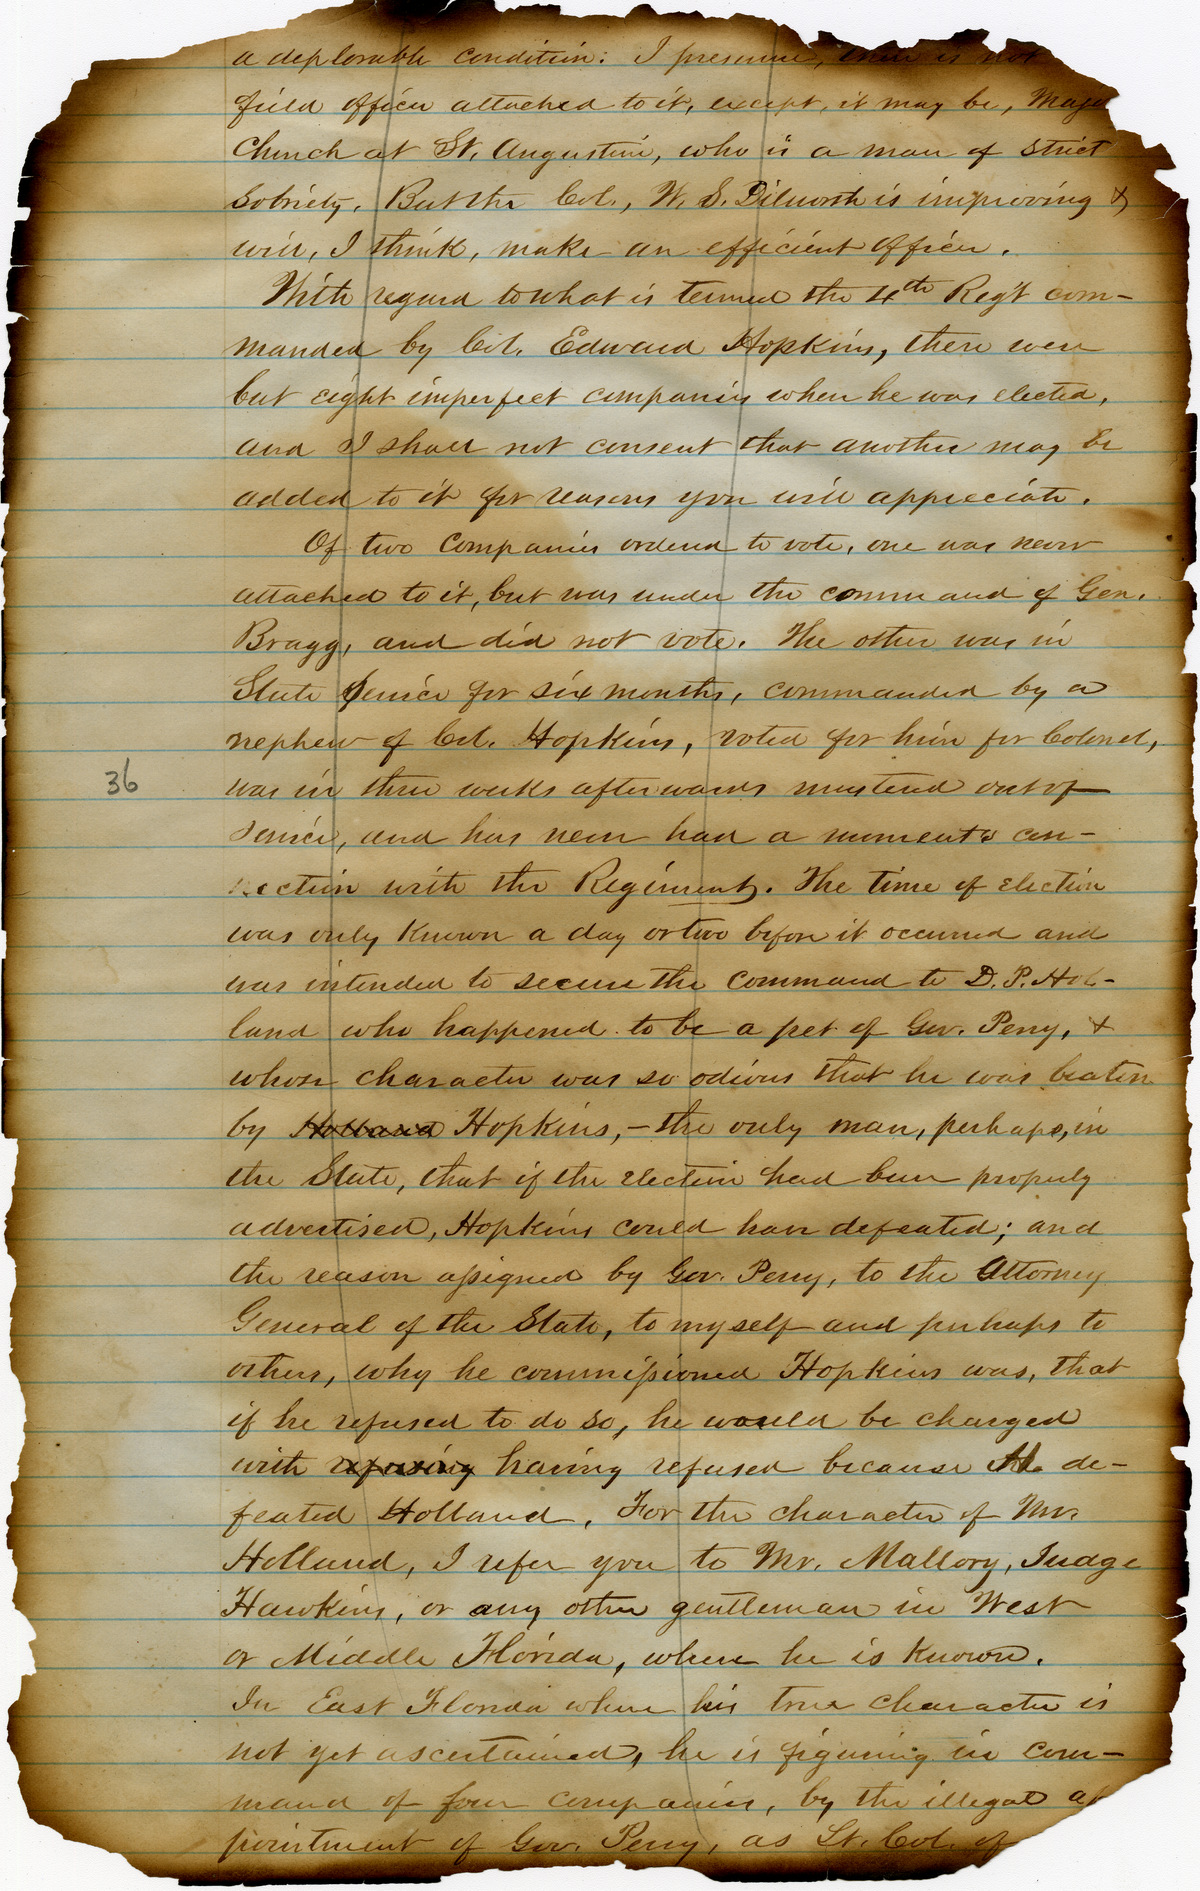 a deplorable condition: I presume, there is not
field officer attached to it, except, it may be, Major
Church at St. Augustine, who is a man of strict
sobriety. But the Col., W. S. Dilworth is improving &
will, I think, make an efficient officer.
With regard to what is termed the 4th Reg't com-
manded by Col. Edward Hopkins, there were
but eight imperfect companies when he was elected,
and I shall not consent that another may be
added to it for reasons you will appreciate.
Of two Companies ordered to vote, one was never
attached to it, but was under the command of Gen.
Bragg, and did not vote. The other was in
State Service for six months, commanded by a
nephew of Col. Hopkins, voted for him for Colonel,
36
was in three weeks afterwards mustered out of
service, and has never had a moment's con-
nection with the Regiment. The time of election
was only known a day or two before it occurred and
was intended to secure the command to D. P. Hol-
land who happened to be a pet of Gov. Perry, &
whose character was so odious that he was beaten
by Holland Hopkins, - the only man, perhaps, in
the State, that if the election had been properly
advertised, Hopkins could have defeated; and
the reason assigned by Gov. Perry, to the Attorney
General of the State, to myself and perhaps to
others, why he commissioned Hopkins was, that
if he refused to do so, he would be charged
with refusing having refused because H. de-
feated Holland. For the character of Mr.
Holland, I refer you to Mr. Mallory, Judge
Hawkins, or any other gentleman in West
or Middle Florida, where he is known.
In East Florida where his true character is
not yet ascertained, he is figuring in com-
mand of four companies, by the illegal ap
pointment of Gov. Perry, as Lt. Col. of